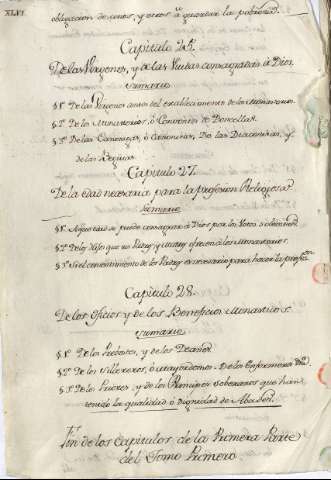 XLVI
obligacion de unos, y otros à guardar la pobreza.
Capitulo 26.
De las Virgenes, y de las Viudas consagradas à Dios.
Sumario
§1º De las Virgenes antes del establecimiento de los Monasterios.
§2º De los Monasterios, ò Conventos de Doncellas.
§3º De las Canonigas, ò Canonisas, De las Diaconisas, y
de las
Capitulo 27.
De la edad necesaria para la profesion Religiosa
Sumario
§1º A que edad se puede consagrarse à Dios por los Votos
§2º De los Hijos que sus Padres y Madres ofrecen à los Monasterios.
§3º Si el consentimiento de los Padres es necesario para hacer la profesion
Capitulo 28.
De los Oficios y de los Beneficios Monasticos.
Sumario
§1º De los Prebostes, y de los Deanes.
§2º De los Villereros, ò mayordomos. De los Enfermeros &c.
§3º De los Priores, y de los Principes Soberanos que han
tenido la qualidad ò dignidad de Abades.
Fin de los Capitulos de la Primera Parte
del Tomo Primero.